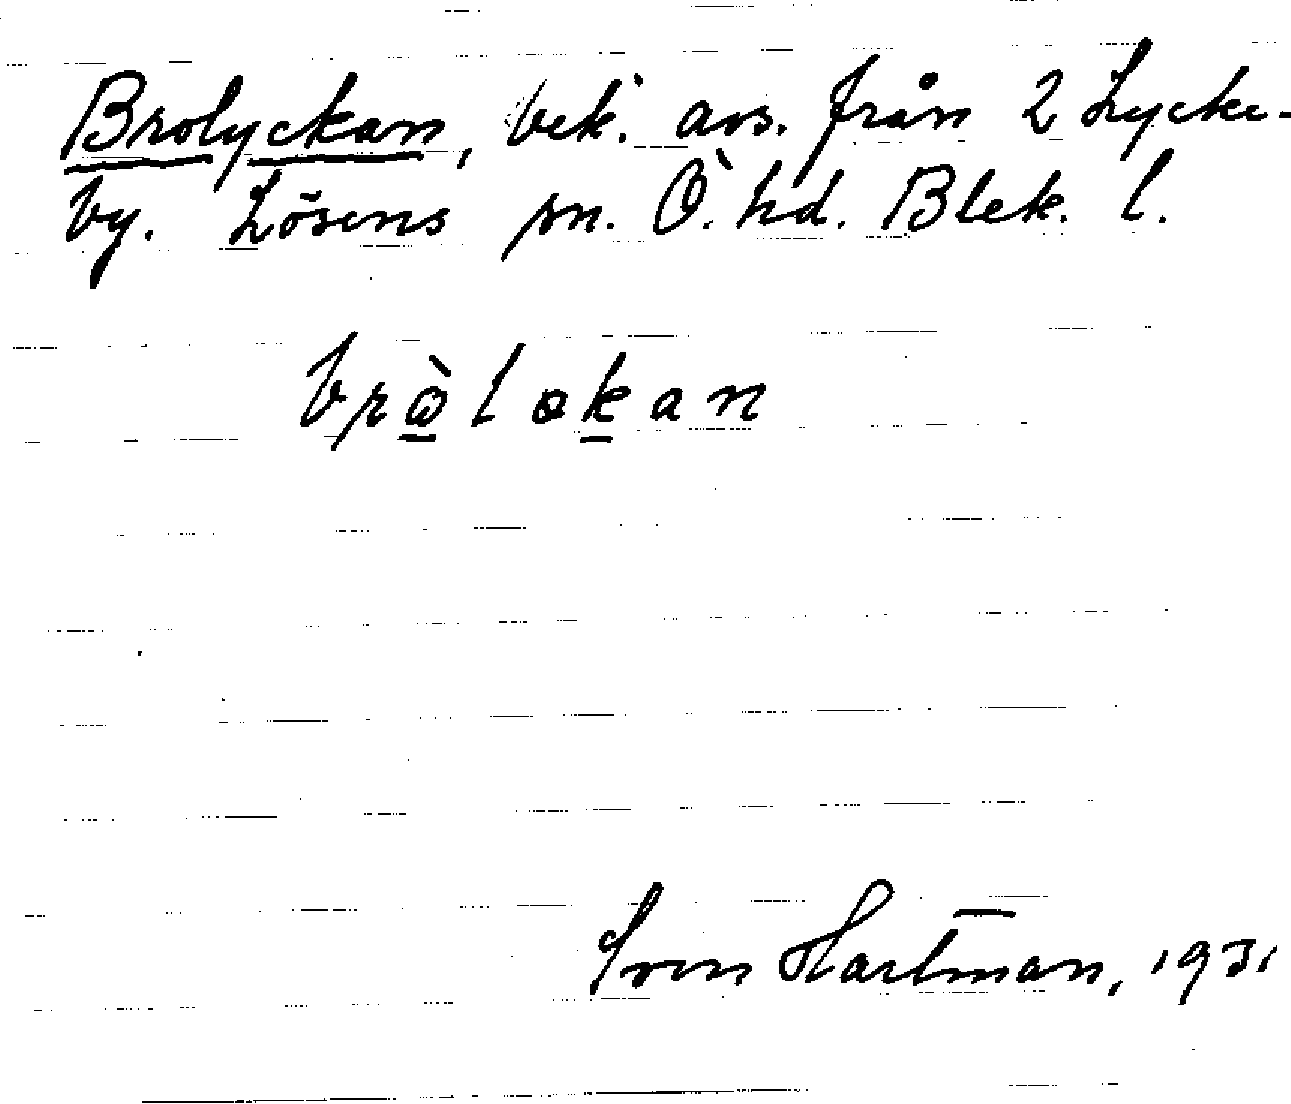 Brolyckan, bek. avs. från 2 Lycke-
by. Lösens sn. Ö. hd. Blek. l.
brò̱løḵan
Sven Hartman, 1931